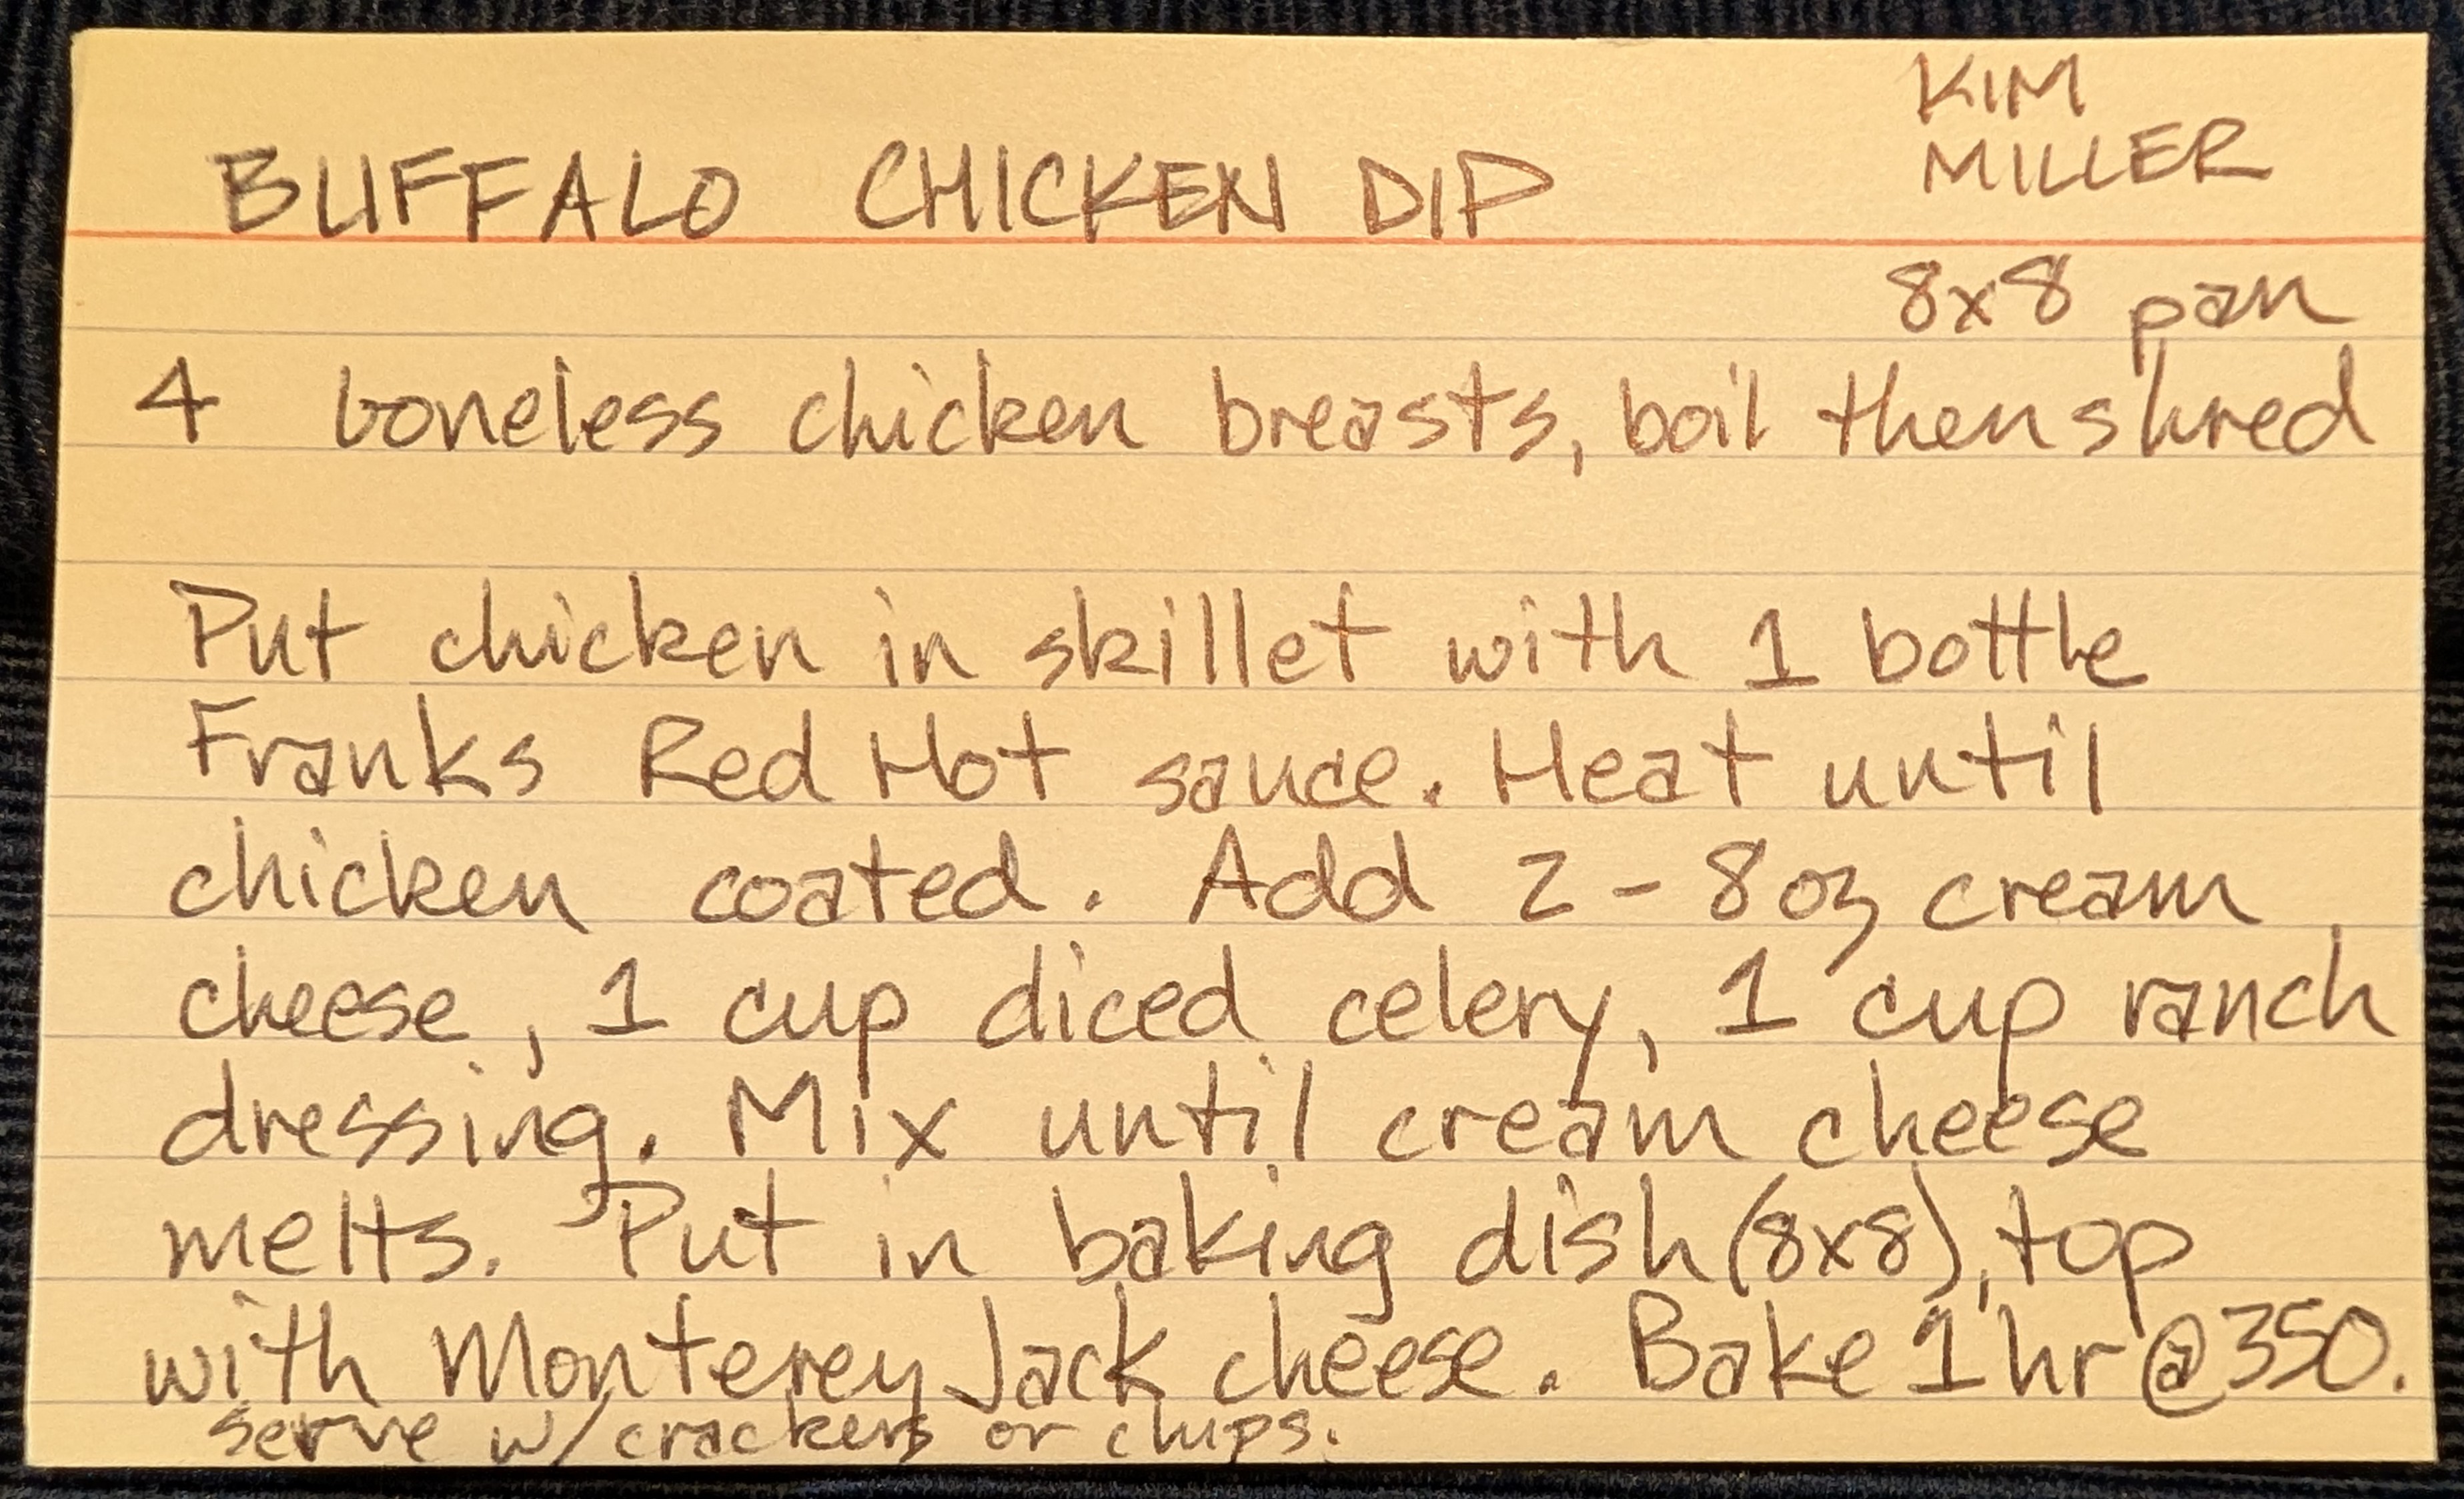 KIM
MILLER
BUFFALO CHICKEN DIP
8x8 pan
4 boneless chicken breasts, boil then shred
Put chicken in skillet with 1 bottle
Franks Red Hot sauce. Heat until
chicken coated. Add 2 - 8oz cream
cheese, 1 cup diced celery, 1 cup ranch
dressing. Mix until cream cheese
melts. Put in baking dish (8x8), top
with Monterey Jack cheese. Bake 1 hr @ 350.
serve w/ crackers or chips.